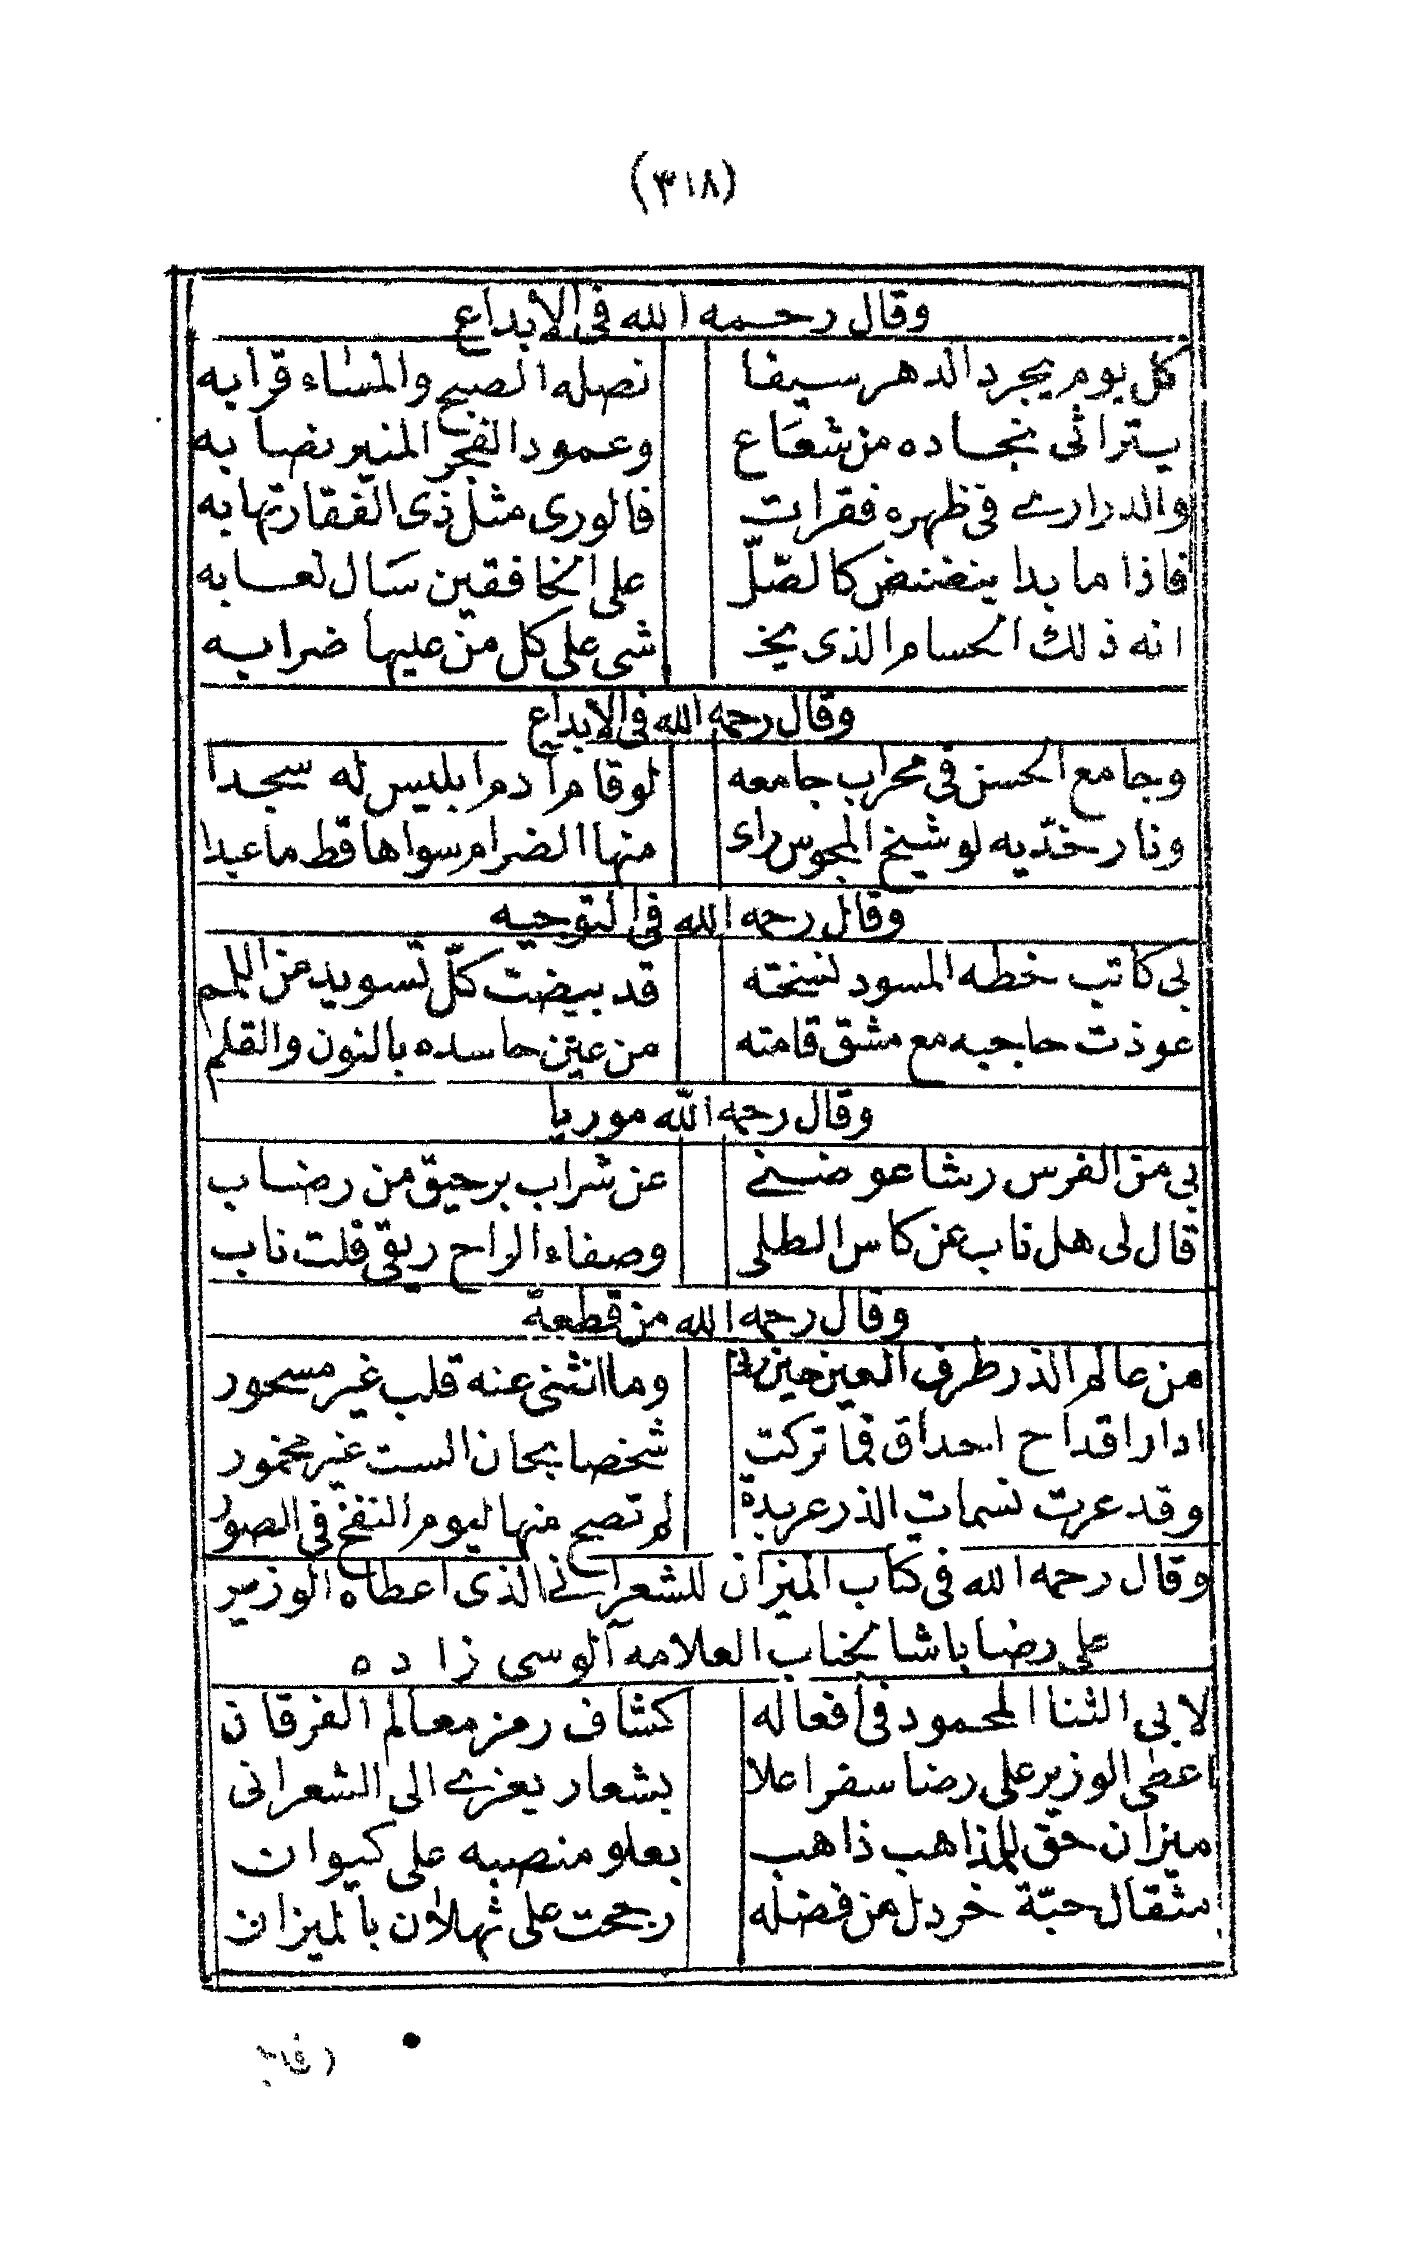 (٣١٨)
وقال رحمه الله فى الابداع
كل يوم يجرد الدهر سيفا نصله الصبح والمساء قرابه
يترائى نجاده من شعاع وعمود الفجر المنير نصابه
والدرارے فى ظهره فقرات فالورى مثل ذى الفقار تهابه
فاذا ما بدا ينضنض كالصّلّ على الخافقين سال لعابه
انه ذلك الحسام الذى يخـ شى على كل من عليها ضرابه
وقال رحمه الله فى الابداع
وجامع الحسن فى محراب جامعه لوقام آدم ابليس له سجدا
ونار خدّيه لو شيخ المجوس راى منها الضرام سواها قط ماعبدا
وقال رحمه الله فى التوجيه
بى كاتب خطه المسود نسخته قد بيضت كلّ تسويد من اللمم
عوذت حاجبه مع مشق قامته من عين حاسده بالنون والقلم
وقال رحمه اللّه موريا
بى من الفرس رشا عوضنے عن شراب برحيق من رضاب
قال لى هل ناب عن كاس الطلى وصفاء الراح ريقى قلت ناب
وقال رحمه الله من قطعة
من عالم الذر طرف العين حين رنى وما انثنى عنه قلب غير مسحور
ادار اقداح احداق فما تركت شخصا بحان الست غير مخمور
وقد عرت نسمات الذر عربدة لم تصح منها ليوم النفخ فى الصور
وقال رحمه الله فى كتاب الميزان للشعرانے الذى اعطاه الوزير
على رضا باشا لجناب العلامه آلوسى زاده
لابى الثنا المحمود فى أفعاله كشاف رمز معالم الفرقان
اعطى الوزير على رضا سفرا علا بشعار يعزے الى الشعرانى
ميزان حق للمذاهب ذاهب بعلو منصبه على كيوان
مثقال حبّة خردل من فضله رجحت على ثهلان بالميزان